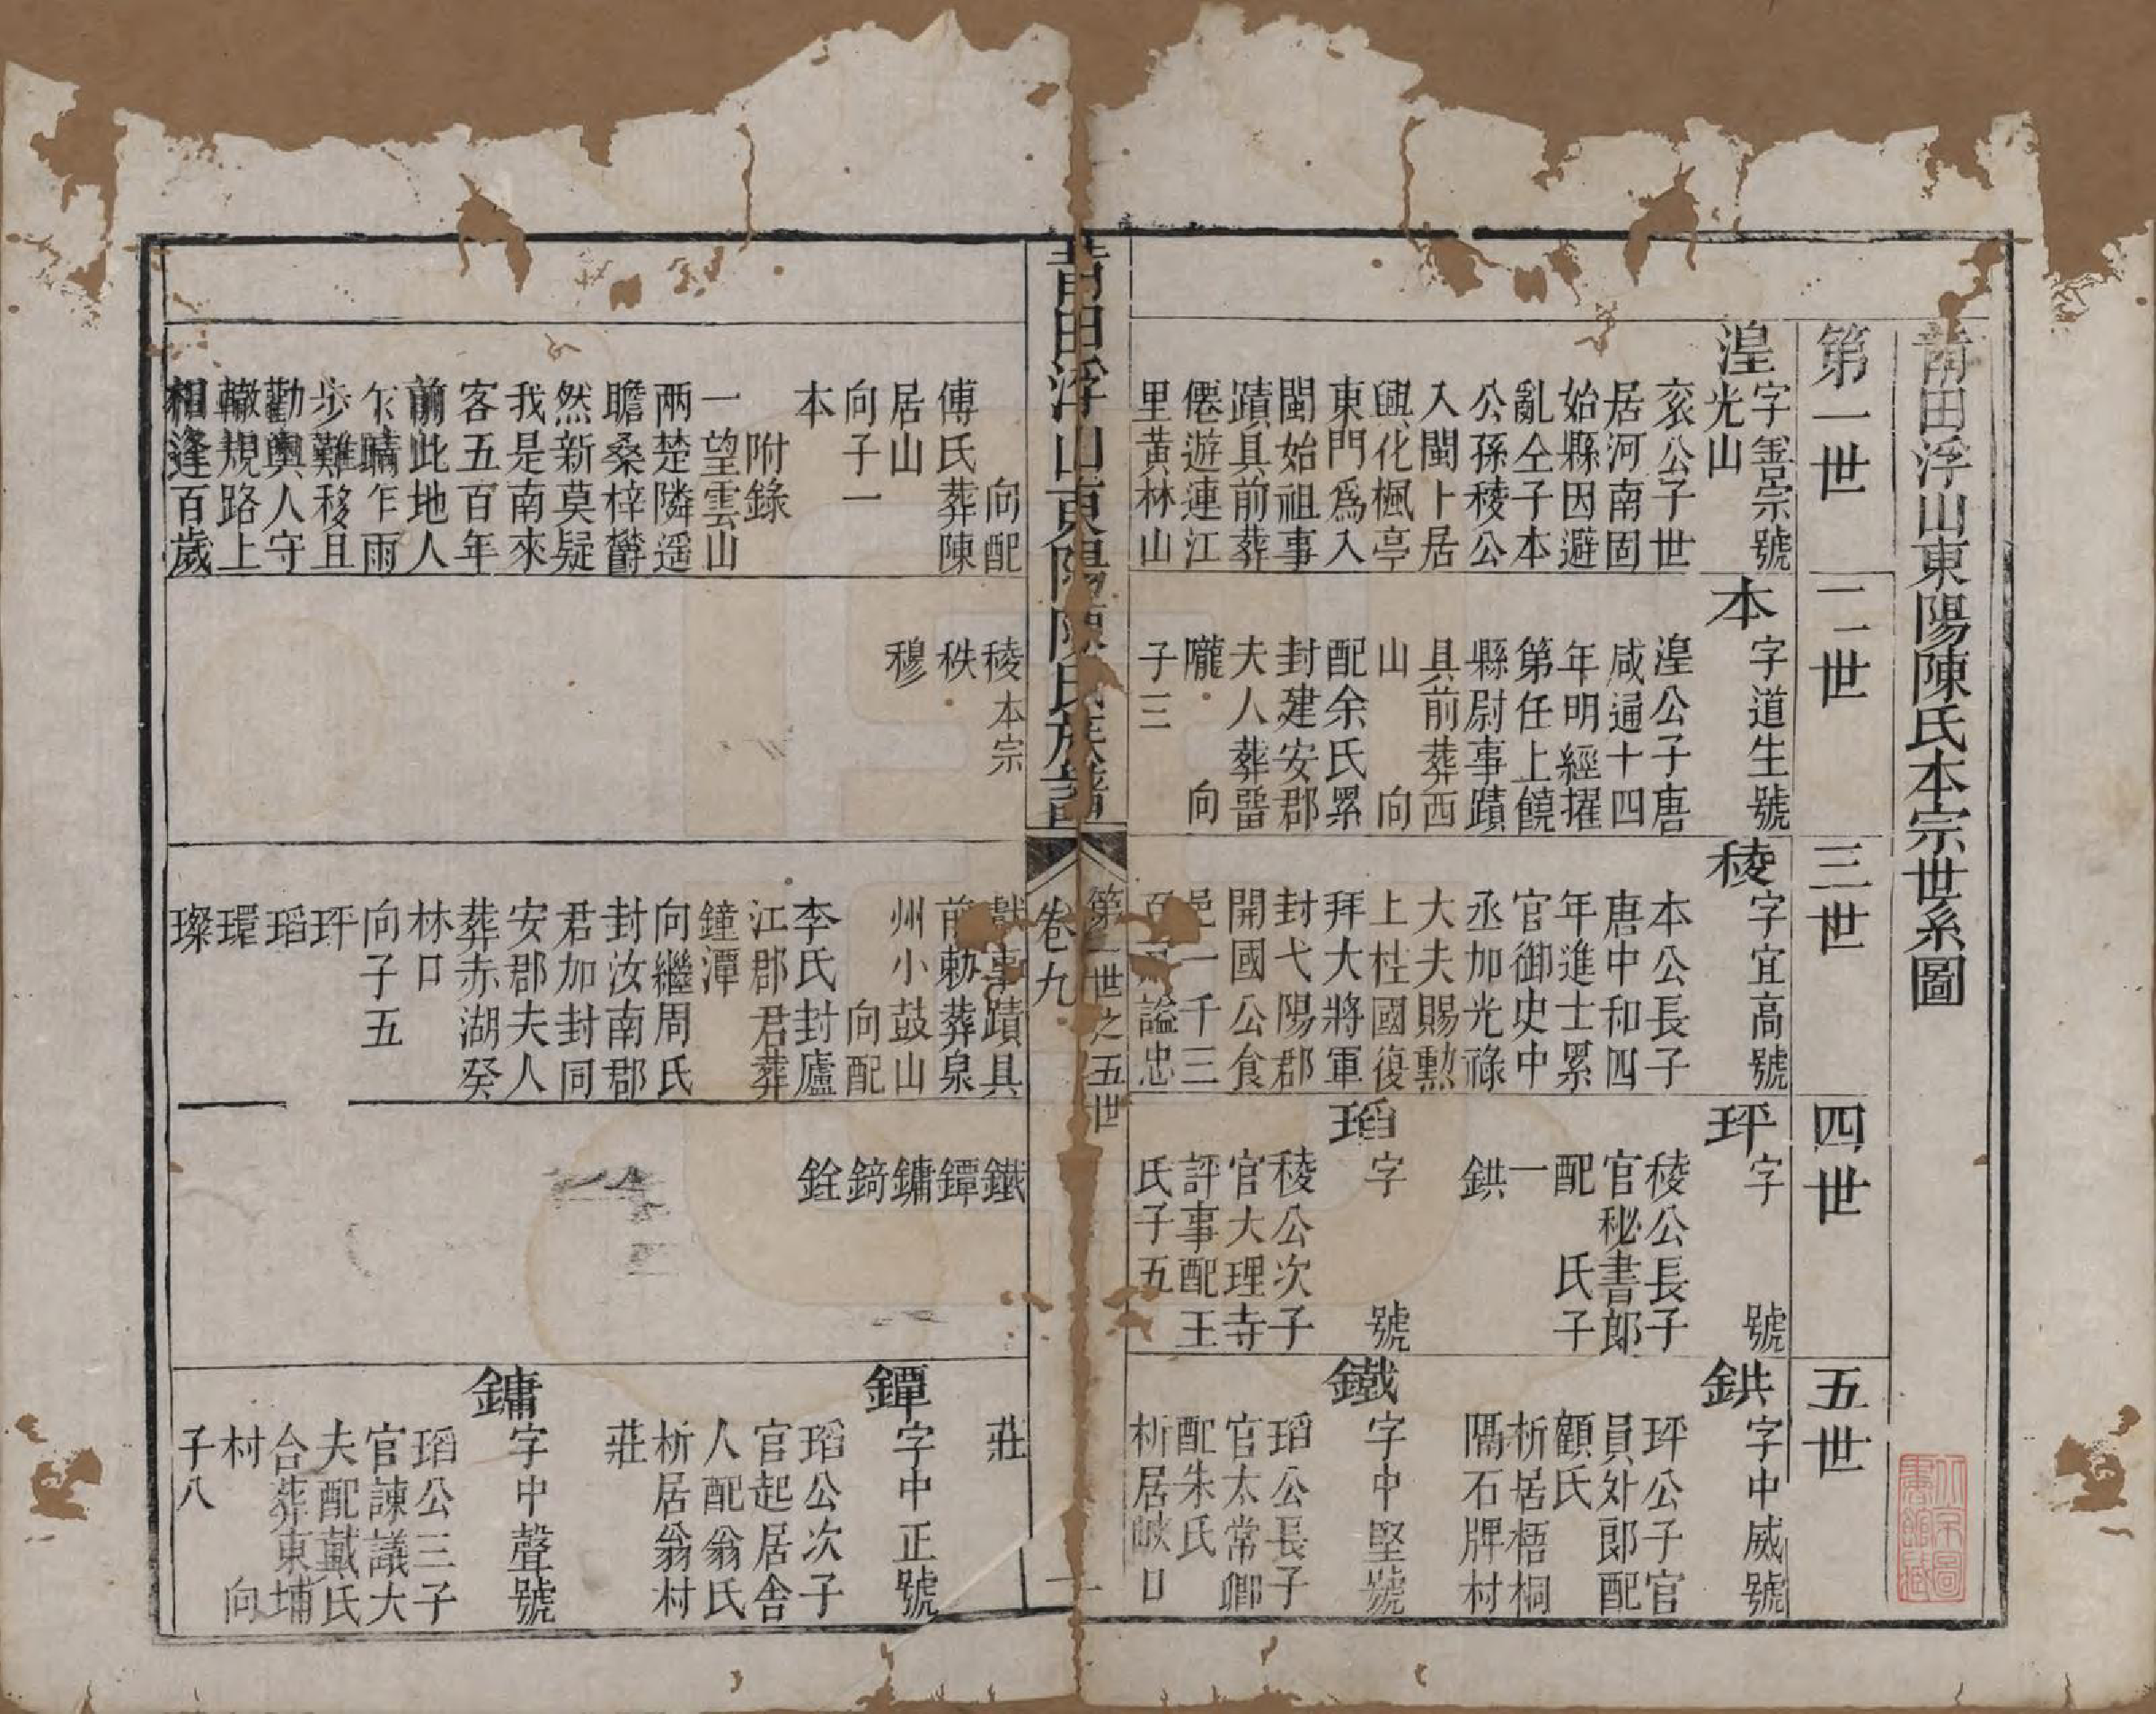 莆田浮山東陽陳氏本宗世系圖
第一世
二世
三世
四世
五世
湟
字善宗號
光山
亥公子世
居河南固
始縣因避
亂仝子本
公孫稜公
入閩卜居
興化楓亭
東門爲入
閩始祖事
蹟具前葬
僊遊連江
里黃林山
本
字道生號
湟公子唐
咸通十四
年明經擢
第任上饒
縣尉事蹟
具前葬西
山 向
配余氏累
封建安郡
夫人葬畱
隴 向
子三
稜
字宜高號
本公長子
唐中和四
年進士累
官御史中
丞加光祿
大夫賜勲
上柱國復
拜大將軍
封弋陽郡
開國公食
邑一千三
百 謚忠
玶
字 號
稜公長子
官秘書郎
配 氏子
一
鉷
瑫
字 號
稜公次子
官大理寺
評事配王
氏子五
鉷
字中威號
玶公子官
員外郎配
顧氏
析居梧桐
隔石牌村
鐵
字中堅號
瑫公長子
官太常卿
配朱氏
析居 口
莆田浮山東陽陳氏族譜
卷九
第一世之五世
一
向配
傅氏葬陳
居山
向子一
本
附錄
一望雲山
兩楚隣遥
瞻桑梓欝
然新莫疑
我是南來
客五百年
前此地人
乍晴乍雨
步難移且
勸輿人守
轍規路上
相逢百歲
稜本宗
秩
穆
獻事蹟具
前勅葬泉
州小鼓山
向配
李氏封廬
江郡君葬
鐘潭
向繼周氏
封汝南郡
君加封同
安郡夫人
葬赤湖癸
林口
向子五
玶
瑫
環
璨
鐵
鐔
鏞
錡
銓
莊
鐔
字中正號
瑫公次子
官起居舍
人配翁氏
析居翁村
莊
鏞
字中聲號
瑫公三子
官諫議大
夫配戴氏
台葬東埔
村 向
子八